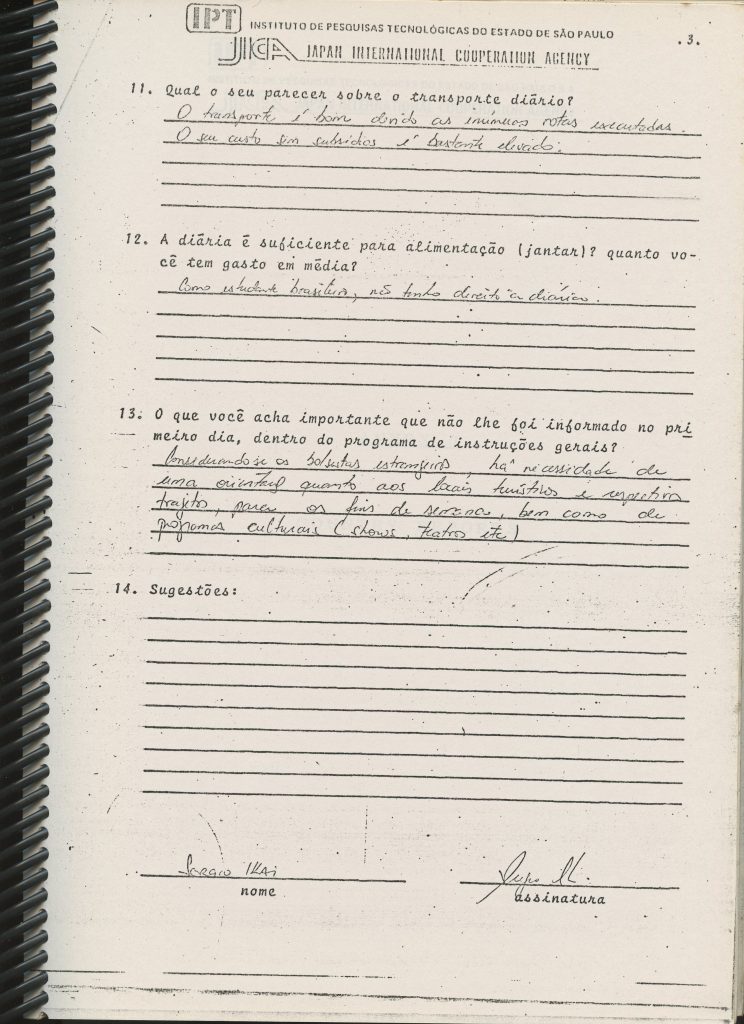 IPT INSTITUTO DE PESQUISAS TECNOLÓGICAS DO ESTADO DE SÃO PAULO
.3.
JICA JAPAN INTERNATIONAL COOPERATION AGENCY
11. Qual o seu parecer sobre o transporte diário?
O transporte é bom devido as inúmeras rotas executadas.
O seu custo sem subsídios é bastante elevado.
12. A diária é suficiente para alimentação (jantar)? quanto vo-
cê tem gasto em média?
Como estudante brasileiro, não tenho direito a diária.
13. O que você acha importante que não lhe foi informado no pri
meiro dia, dentro do programa de instruções gerais?
Considerando-se os bolsistas estrangeiros, há necessidade de
uma quanto aos locais turísticos e respectivos
trajetos, para os fins de semana, bem como de
programas culturais (shows, teatros etc)
14. Sugestões:
Sergio IKAI
nome
assinatura